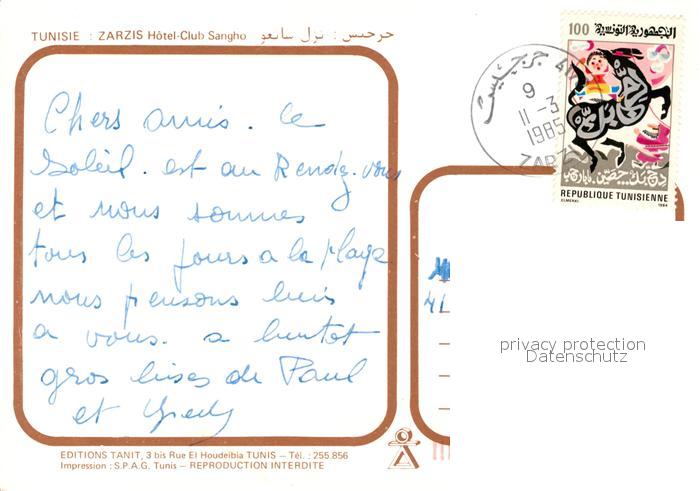 TUNISIE : ZARZIS Hôtel-Club Sangho جرجيس : نزل سانغو
Chers amis. Le
Soleil. est au Rendez. vous
et nous sommes
tous les jours a la plage
nous pensons bien
a vous. a bientot
gros bises de Paul
et
EDITIONS TANIT, 3 bis Rue El Houdeibia TUNIS – Tél. : 255.856
Impression : S.P.A.G. Tunis – REPRODUCTION INTERDITE
جرجيس
9
11-3
1985
ZARZIS
100 الجمهورية التونسية
REPUBLIQUE TUNISIENNE
ELMEKKI 1984
41
privacy protection
Datenschutz